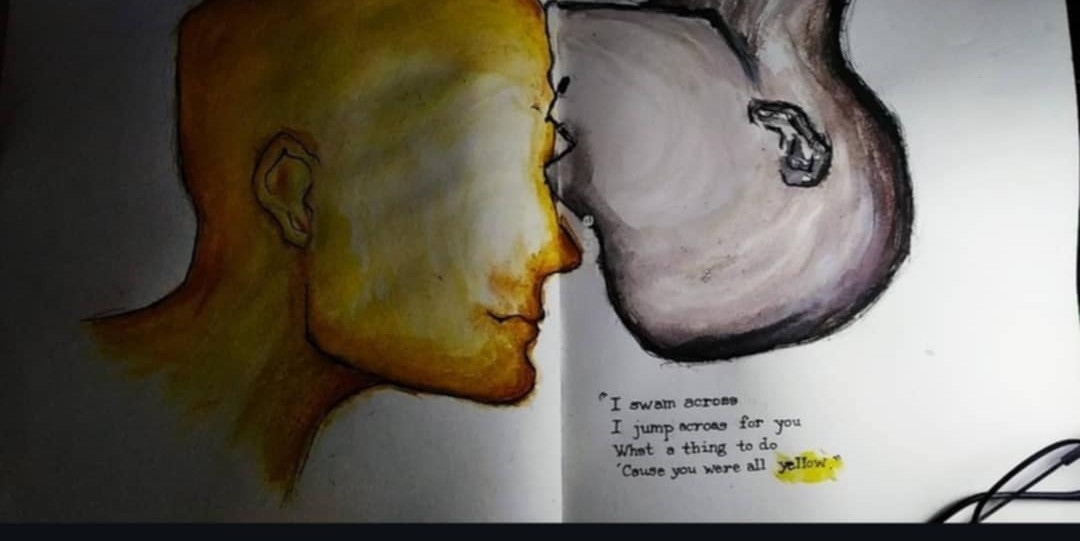 "I swam across
I jump across for you
What a thing to do
'Cause you were all yellow."